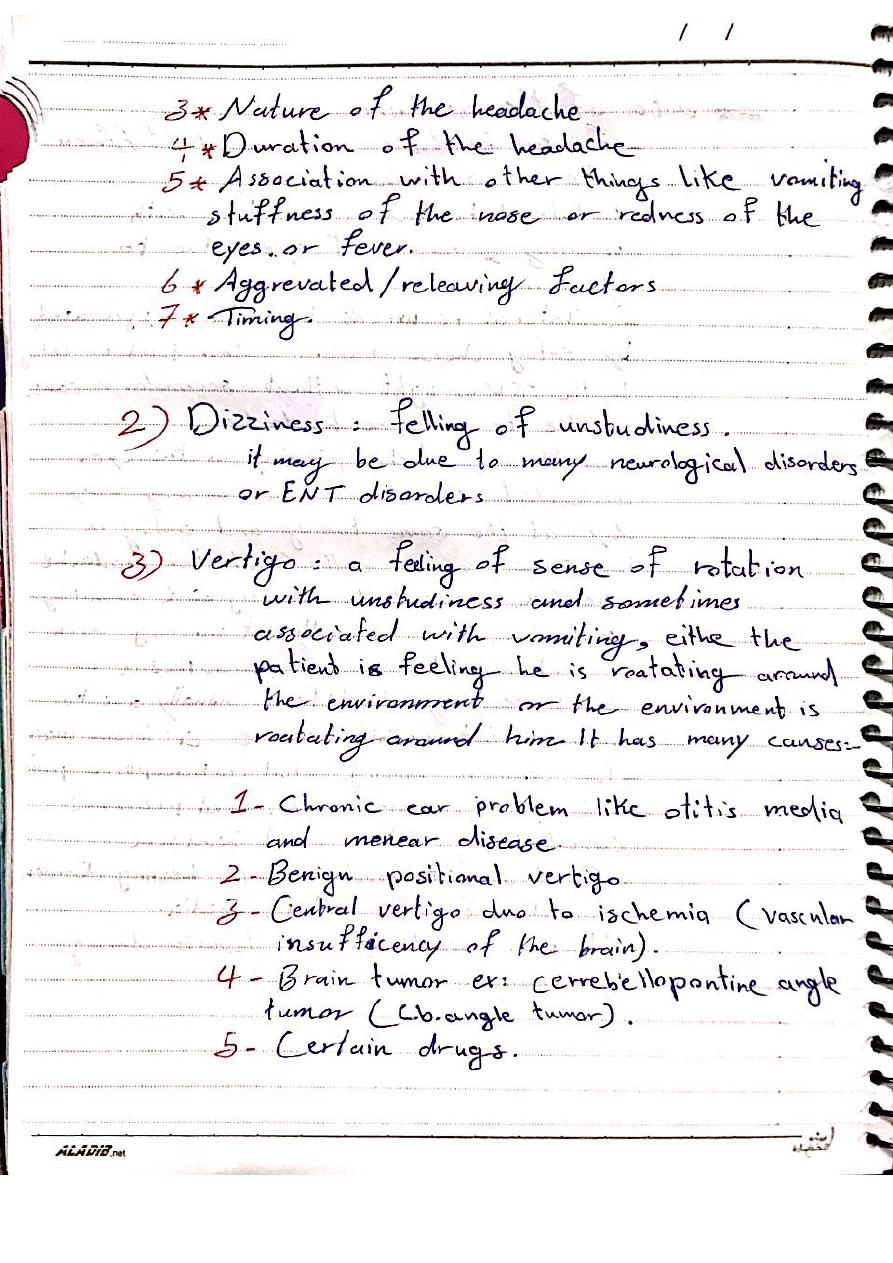 / /
3* Nature of the headache
4* Duration of the headache
5* Association with other things like vomiting
stuffness of the nose or redness of the
eyes. or fever.
6* Aggrevated/releaving factors
7* Timing.
2) Dizziness : felling of unstudiness.
it may be due to many neurological disorders
or ENT disorders
3) Vertigo : a feeling of sense of rotation
with unstudiness and sometimes
associated with vomiting, eithe the
patient is feeling he is roatating around
the environment or the environment is
roatating around him It has many causes:-
1- Chronic ear problem like otitis media
and menear disease.
2- Benign positional vertigo
3- Central vertigo duo to ischemia (vascular
insufficency of the brain).
4- Brain tumor ex: cerrebellopontine angle
tumor (Cb.angle tumor).
5- Certain drugs.
ALADIB.net